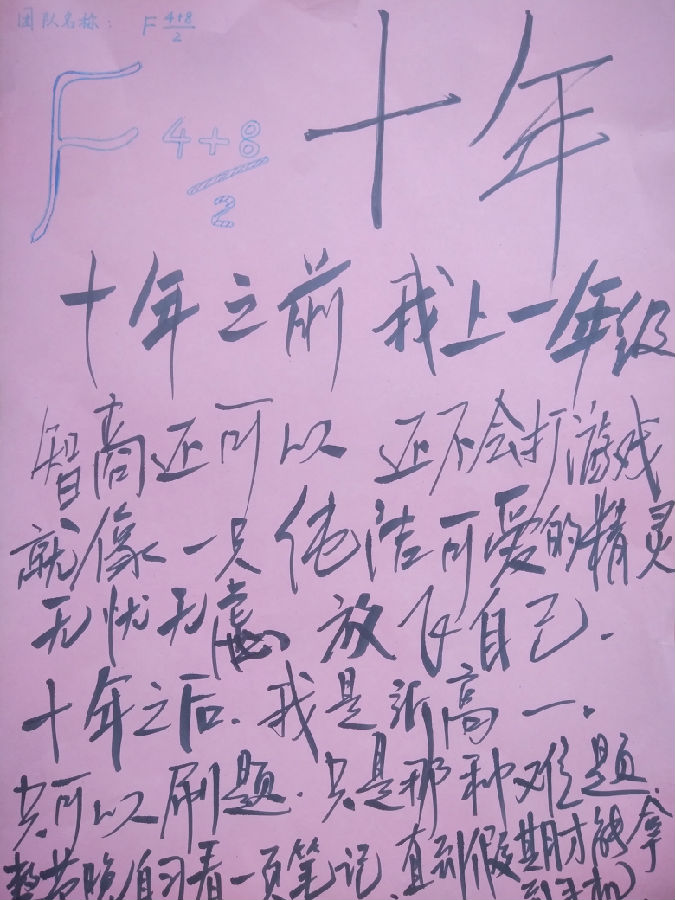 团队名称： F 4+8/2
F 4+8/2
十年
十年之前 我上一年级
智商还可以 还不会打游戏
就像一只纯洁可爱的精灵
无忧无虑 放飞自己.
十年之后. 我是新高一.
只可以刷题. 只是那种难题
整节晚自习看一页笔记. 直到假期才能拿
到手机